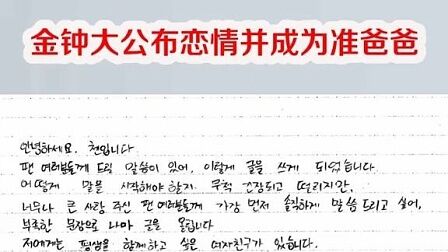 金钟大公布恋情并成为准爸爸
안녕하세요. 첸입니다.
팬 여러분들께 드릴 말씀이 있어, 이렇게 글을 쓰게 되었습니다.
어떻게 말을 시작해야 할지 무척 긴장되고 떨리지만,
너무나 큰 사랑 주신 팬 여러분들께 가장 먼저 솔직하게 말씀드리고 싶어,
부족한 문장으로 나마 글을 올립니다.
저에게는 평생을 함께하고 싶은 여자친구가 있습니다.